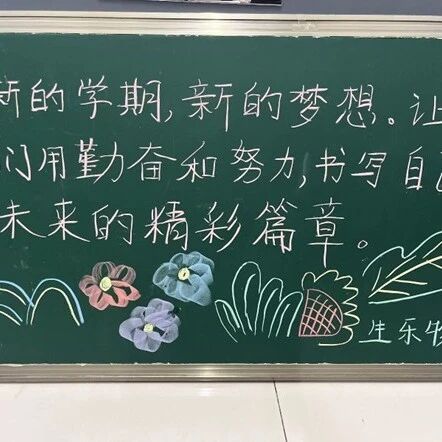 新的学期,新的梦想。让
们用勤奋和努力,书写自
未来的精彩篇章。
生乐